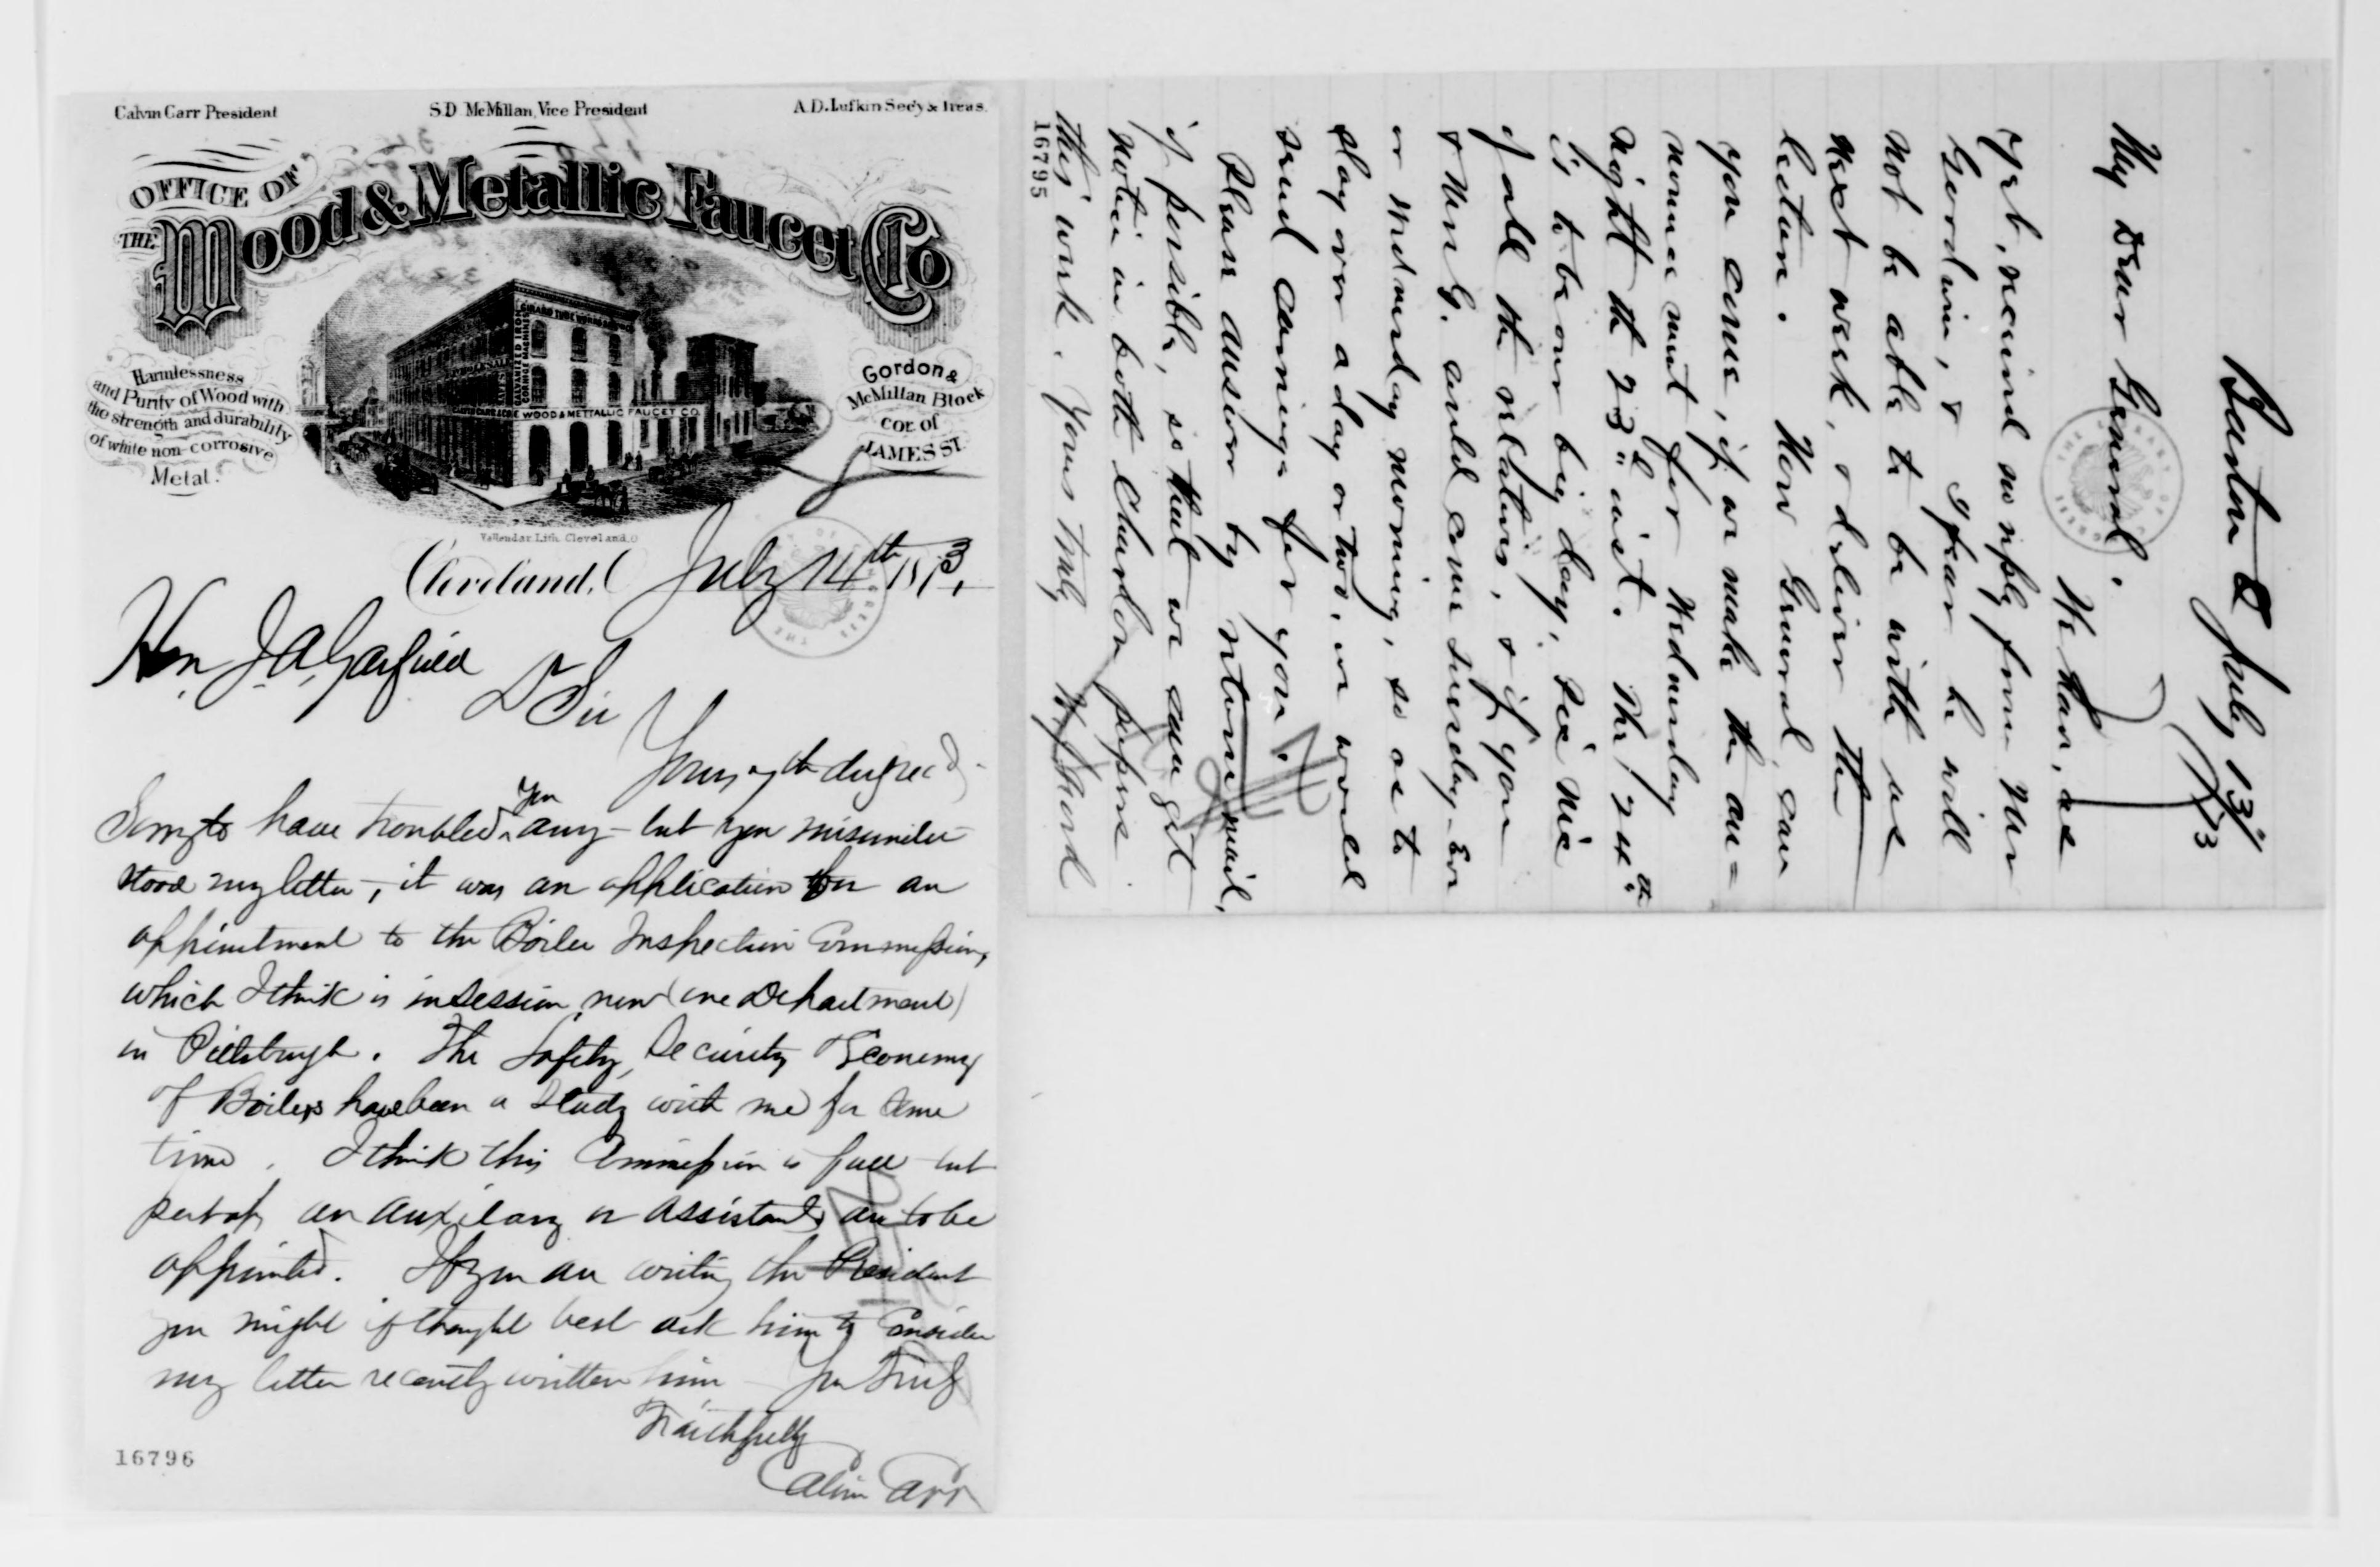 Calvin Carr President
S.D. McMillan, Vice President
A.D. Lufkin Secy & Treas.
OFFICE OF
THE Wood & Metallic Faucet Co
Harmlessness
and Purity of Wood with
the strength and durability
of white non-corrosive
Metal.
WOOD & METTALLIC FAUCET CO.
Gordon &
McMillan Block
cor. of
JAMES ST.
Vallendar Lith. Cleveland. O
Cleveland, O July 14th 1873.
Hon J. A. Garfield
Dr Sir
Yours 9th du recd.
Sorry to have troubled you any - but you misunder
stood my letter, it was an application for an
appointment to the Boiler Inspection Commission,
which I think is in session now (one Department)
in Pittsburgh. The Safety, Security & Economy
of Boilers have been a Study with me for some
time. I think this Commission is full but
perhaps an auxilary or assistants are to be
appointed. If you are writing the President
you might if thought best ask him to Consider
my letter recently written him You Truly
Faithfully
Calvin Carr
16796
Burton O July 13" /73
My Dear General.
We have, as
yet, received no reply from Mr
Goodwin, & I fear he will
not be able to be with us
next week, & deliver the
lecture. Now General, can
you come, if we make the an=
nouncement for Wednesday
night the 23"d inst. The 24th
is to be our big day, Pic Nic
of all the relatives, & if you
& Mrs G. could come Tuesday Ev
or Wednesday morning, so as to
stay over a day or two, we would
send carriage for you.
Please answer by return mail,
if possible, so that we can get
notice in both Chardon papers
this week. Yours Truly
Ford
16795